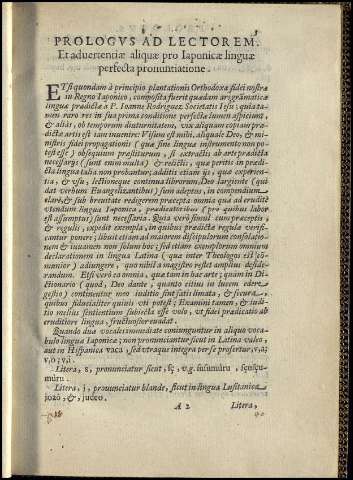 PROLOGVS AD LECTOREM.
Et aduertentiæ aliquæ pro Iaponicæ linguæ
perfecta pronuntiatione.
ETsi quondam à principio plantationis Orthodoxæ fidei nostræ
in Regno Iaponico, composita fuerit quædam ars grāmaticæ
linguæ prædictæ à P. Ioanne Rodriguez Societatis Iesu; quia ta-
men raro res in sua prima conditione perfectæ lumen aspiciunt,
& aliàs, ob temporum diuturnitatem, vix aliquam copiam præ-
dictæ artis est iam inuenire: Visum est mihi, aliquale Deo, & mi-
nistris fidei propagationis (quæ sine lingua instrumento non po-
test esse) obsequium præstiturum, si extractis ab arte prædicta
necessarijs (sunt enim multa) & relictis, quæ peritis in prædi-
cta lingua talia non probantur; additis etiam ijs, quæ experien-
tia, & vsu, lectioneque continua librorum, Deo largiente (qui
dat verbum Euangelizantibus) sum adeptus, in compendium
clarè, & sub breuitate redigerem præcepta omnia quæ ad erudité
vtendum lingua Iaponica, prædicatoribus (pro quibus labor
est assumptus) sunt necessaria. Quia verò simul cum præceptis,
& regulis, expedit exempla, in quibus prædictæ regulæ verifi-
cantur ponere; libuit etiam ad maiorem discipulorum consolatio-
nem & iuuamen non solum hoc; sed etiam exemplorum omnium
declarationem in lingua Latina (quæ inter Theologos est com-
munior) adiungere, quo nihil à magistro restet amplius desside-
randum. Etsi verò ea omnia, quæ tam in hac arte; quam in Di-
ctionario (quod, Deo dante, quanto citius in lucem edere
gestio) continentur meo iudicio sint satis limata, & secura,
quibus fiducialiter quiuis vti potest; Examini tamen, & iudi-
tio melius sentientium subiecta esse volo, vt fidei prædicatio ab
eruditiore lingua, fructuosior euadat.
Quando duæ vocales immediatè coniunguntur in aliquo voca-
bulo linguæ Iaponicæ; non pronunciantur sicut in Latina valea,
aut in Hispanica vaca, sed vtraque integra per se profertur, v,a;
v,o; v,i.
Litera, s, pronunciatur sicut, sç, v.g. susumùru, sçusçu-
mùru.
Litera, j, pronunciatur blande, sicut in lingua Lusitanica
joaõ, &, judeo.
A 2 Litera,